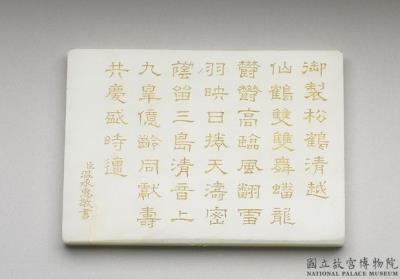 御製松鶴清越
仙鶴雙雙舞蟠龍
鬱鬱高臨風翻雪
羽映日捲天濤密
蔭留三島清音上
九皐億齡同獻壽
共慶盛時遭
臣溫承惠敬書
國立故宮博物院
NATIONAL PALACE MUSEUM